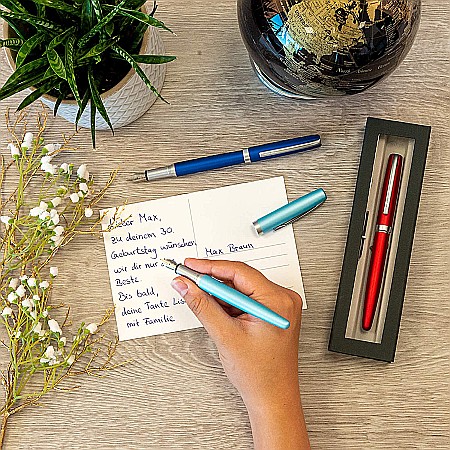 Lieber Max,
zu deinem 30.
Geburtstag wünschen
wir dir
Beste.
Bis bald,
deine Tante Lis
mit Familie
Max Braun